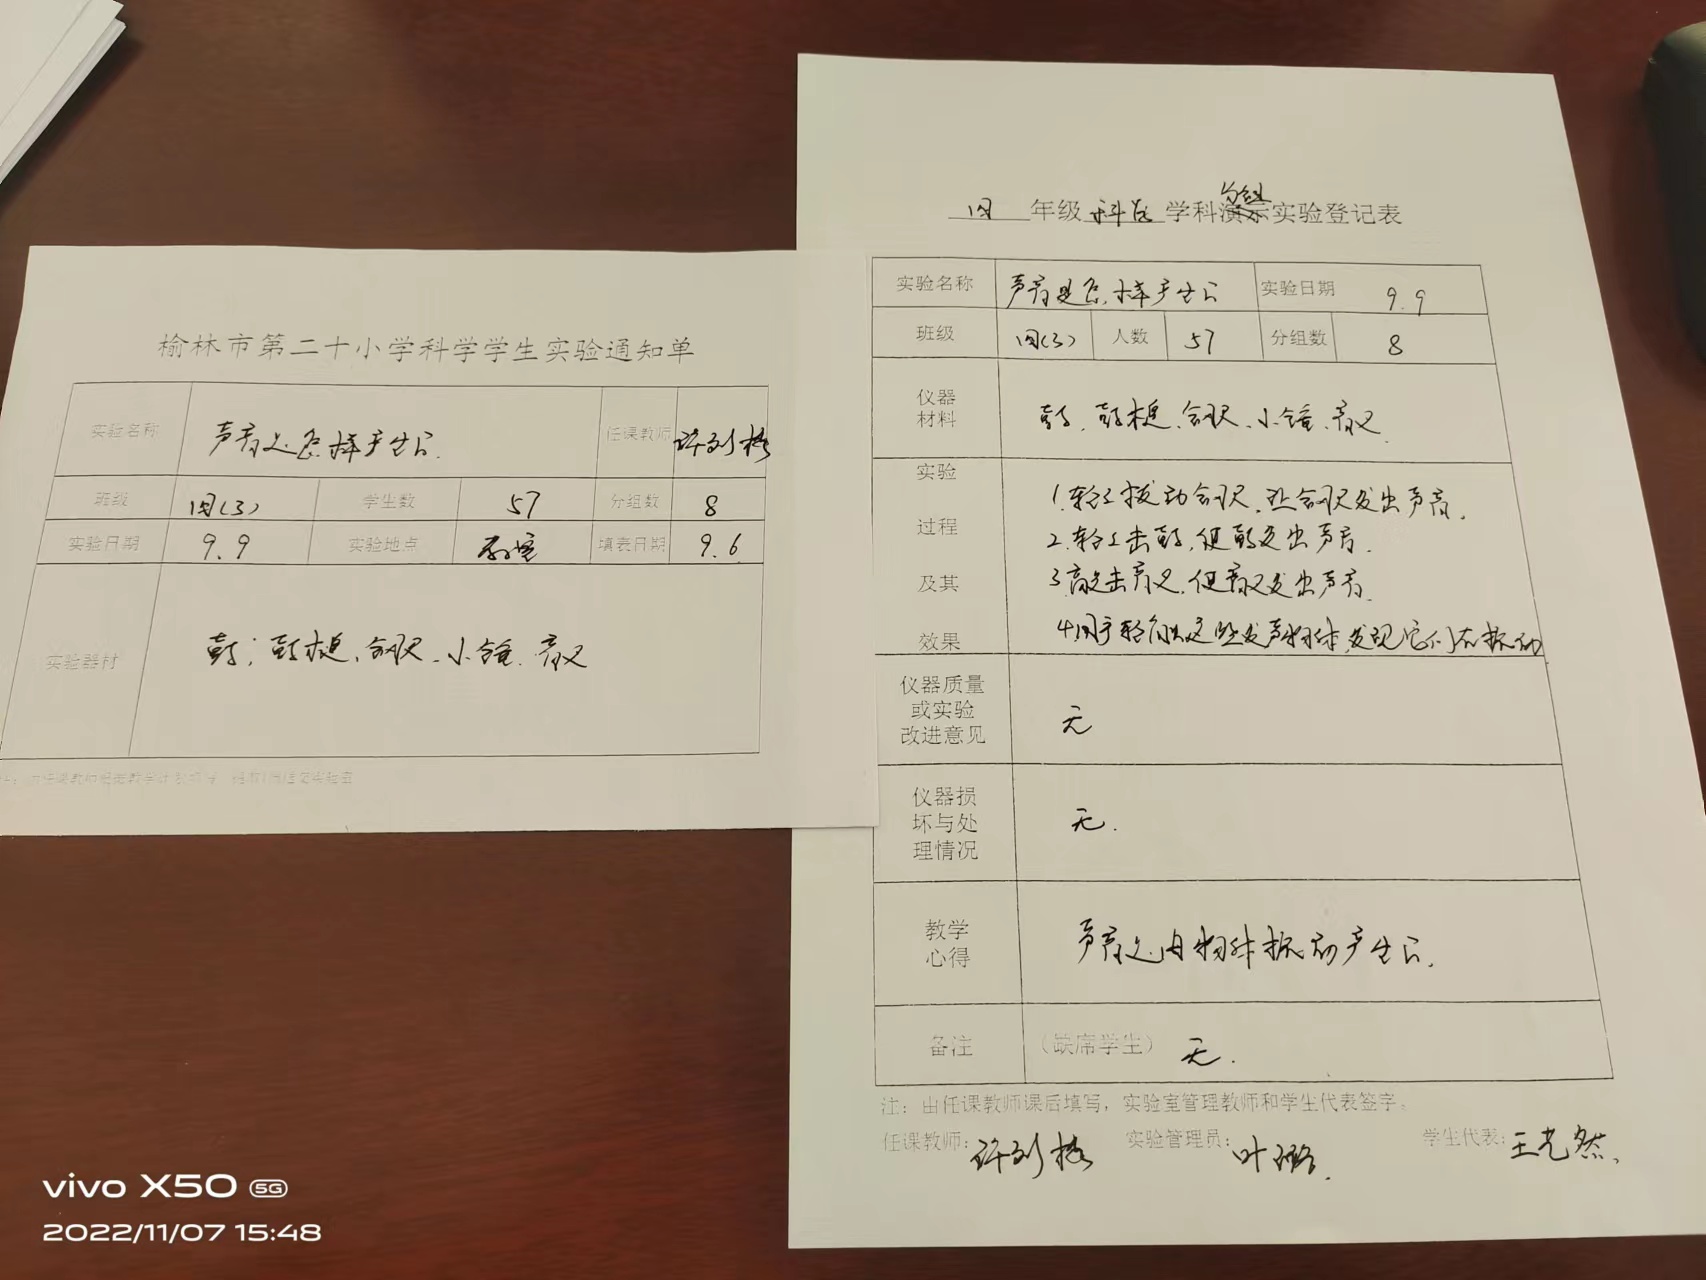 榆林市第二十小学科学学生实验通知单
实验名称 声音是怎样产生的 任课教师
班级 四(3) 学生数 57 分组数 8
实验日期 9.9 实验地点 教室 填表日期 9.6
实验器材 鼓、鼓槌、钢尺、小锤、音叉
四 年级 科学 学科分组实验登记表
实验名称 声音是怎样产生的 实验日期 9.9
班级 四(3) 人数 57 分组数 8
仪器
材料
鼓、鼓槌、钢尺、小锤、音叉
实验
过程
及其
效果
1.轻轻拨动钢尺,让钢尺发出声音.
2.轻轻击鼓,使鼓发出声音.
3.敲击音叉,使音叉发出声音.
4.用手轻触这些发声物体,发现它们在振动
仪器质量
或实验
改进意见
无
仪器损
坏与处
理情况
无.
教学
心得
声音是由物体振动产生的.
备注 (缺席学生) 无.
注：由任课教师课后填写，实验室管理教师和学生代表签字。
任课教师: 实验管理员: 叶璐. 学生代表: 王艺然.
vivo X50 5G
2022/11/07 15:48